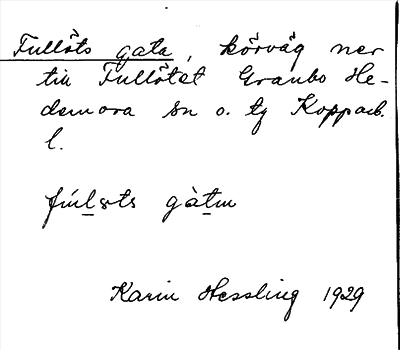 Fullöts gata, körväg ner
till Fullötet Granbo He-
demora sn o. tg Kopparb.
l.
Karin Hessling 1929